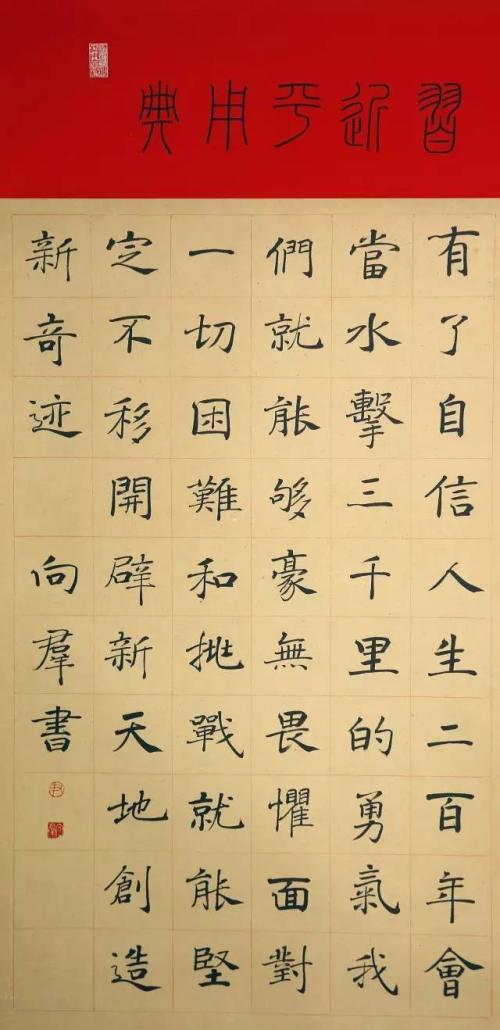 習近平用典
有了自信人生二百年會
當水擊三千里的勇氣我
們就能够豪無畏懼面對
一切困難和挑戰就能堅
定不移開闢新天地創造
新奇迹 向羣書